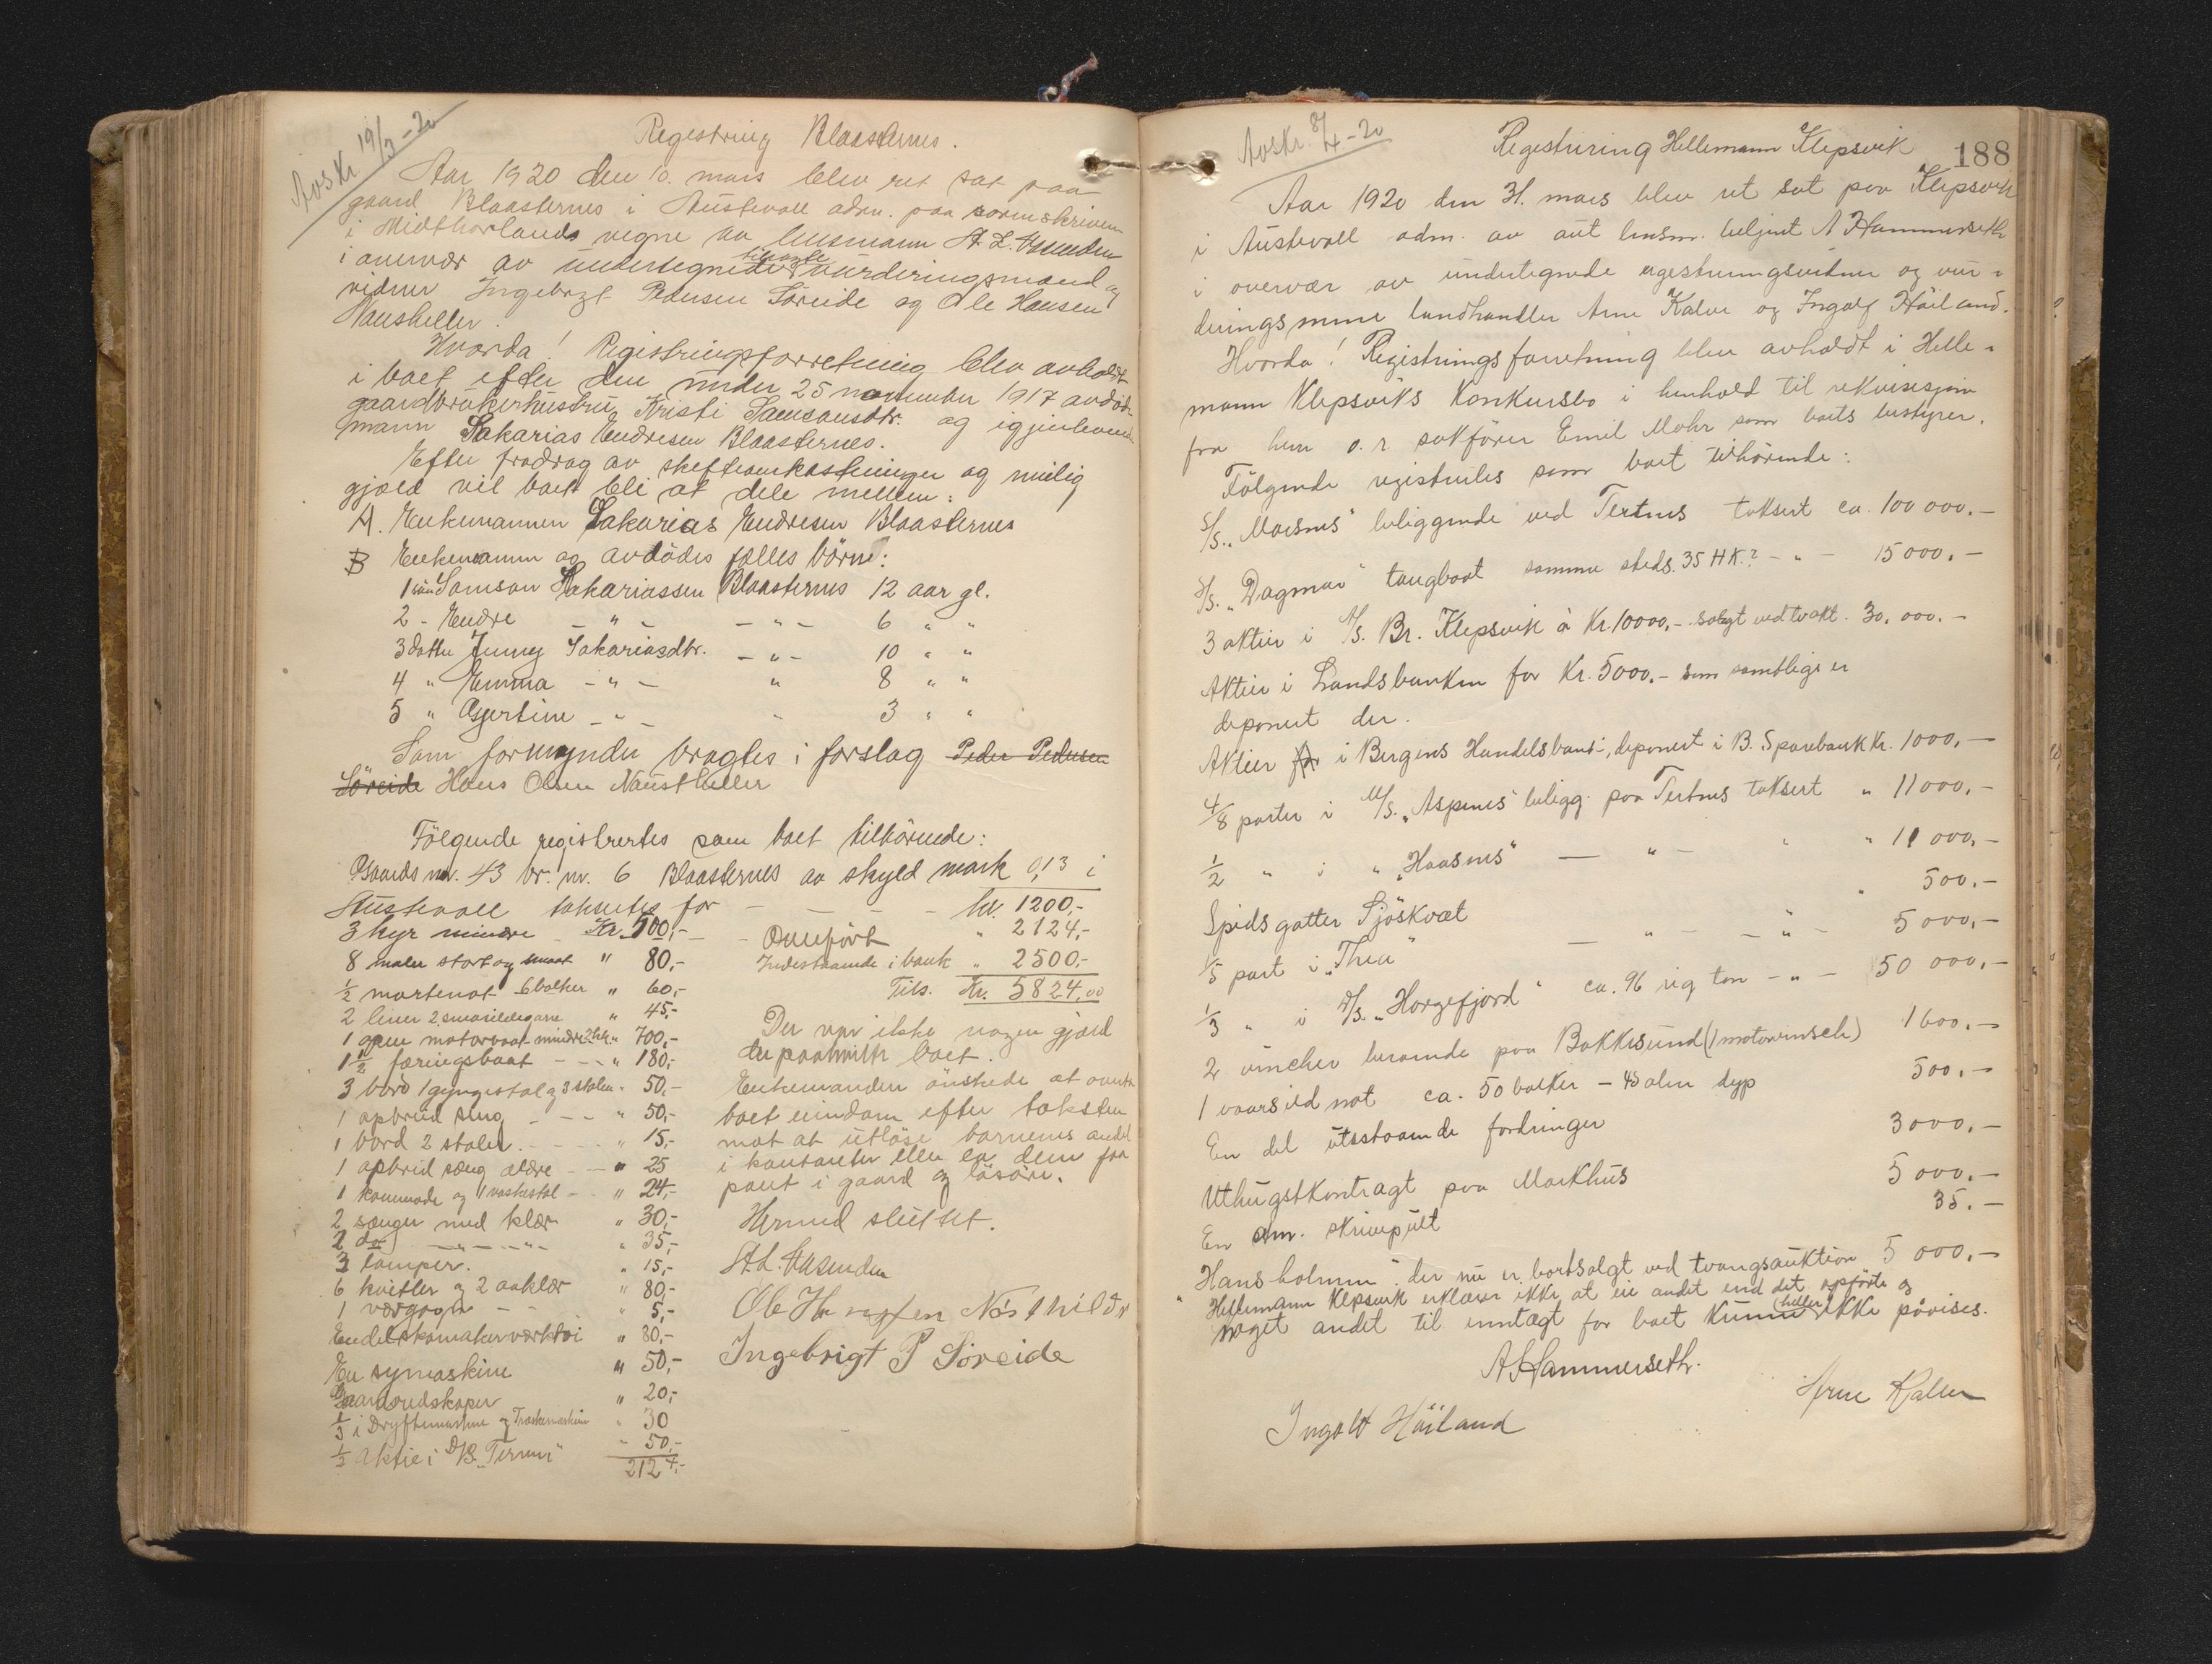 Avskr 19/3-20
Registring Blaasternes.
Aar 1920 den 10. mars blev ret sat paa
gaard Blaasternes i Austevoll adm. paa sorenskriveren
i Midthorlands vegne av lensmann St. L.
i overvær av undertegnede tilsagte vurderingsmænd og
vidner Ingebrigt Pedersen Söreide og Ole Hansen
Naustheller.
Hvorda! Registringsforretning blev avholdt
i boet efter den under 25 november 1917 avdöde
gaardbrukerhustru Kristi Samsonsdtr. og igjenlevende
mann Sakarias Endresen Blaasternes.
Efter fradrag av skifteomkostninger og mulig
gjæld vil boet bli at dele mellem:
A. Enkemannen Sakarias Endresen Blaasternes
B Enkemann og avdödes fælles börn:
1 sön Samson Sakariassen Blaasternes 12 aar gl.
2 - Endre - " - - " - 6 " "
3 datter Jenny Sakariasdtr. - " - 10 " "
4 " Emma - " - " 8 " "
5 " Gjertine - " - " 3 " "
Som formynder bragtes i forslag Peder Pedersen
Söreide Hans Olsen Naustheller
Fölgende registrertes som boet tilhörende:
Gaards nr. 43 br. nr. 6 Blaasternes av skyld mark 0,13 i
Austevoll takseres for - - - - kr. 1200,-
3 kyr mindre - Kr. 500,-
8 maler stort og smaat " 80,-
1/2 mortenot 6 bolker " 60,-
2 liner 2 smaasildegarn " 45,-
1 open motorbaat mindre 2 hk. " 700,-
1 1/2 færingsbaat - - " 180,-
3 bord 1 gyngestol og 3 stoler " 50,-
1 opbrid seng - - - " 50,-
1 bord 2 stoler - - - " 15,-
1 opbrid sæng ældre - - " 25
1 kommode og 1 vaskestol - " 24,-
2 sænger med klær " 30,-
2 do - " - - " - " 35,-
3 lamper. " 15,-
6 kvitler og 2 aaklær " 80,-
1 - - " 5,-
Endel skomakerverktöi " 30,-
En symaskine " 50,-
Gaardsredskaper " 20,-
1/5 i Dryftemaskine og Træskemaskin " 30
1/2 Aktie i D/S. " 50,-
2124,-
Overfört " 2124,-
Indestaaende i bank " 2500,-
Tils. Kr. 5824,00
Der var ikke nogen gjæld
der paahvilte boet.
Enkemanden önskede at overta
boet eiendom efter taksten
mot at utlöse barnenes andel
i kontanter eller la dem faa
pant i gaard og lösöre.
Hermed sluttet.
St. L.
Ole Hansen
Ingebrigt P Söreide
188
Avskr. 8/4-20
Registrering Hellemann Klepsvik
Aar 1920 den 31. mars blev ret sat paa Klepsvik
i Austevoll adm. av aut lensm. betjent A Hammerseth
i overvær av undertegnede registreringsvidner og vur-
deringsmenn landhandler Arne Kalve og Ingolf Höiland.
Hvorda! Registringsforretning blev avholdt i Helle-
mann Klepsviks Konkursbo i henhold til rekvisisjon
fra herr o. r. sakförer Emil Mohr som boets bestyrer.
Fölgende registreiles som boet tilhörende:
S/S. "Maasnes" beliggende ved Tertnes taksert ca. 100 000.-
S/S. "Dagmar" taugbaat samme steds. 35 HK.? - " - 15 000.-
3 aktier i A/S. Br. Klepsvik à Kr. 10000.- solgt ved tvakt. 30,000.-
Aktier i Landsbanken for Kr. 5000.- som samtlige er
deponert der.
Aktier for i Bergens Handelsbank, deponert i B. Sparebank Kr. 1000,-
4/8 parter i M/S. "Aspenes" beligg. paa Tertnes taksert " 11000,-
1/2 " i " "Haasnes" - " - " " 11 000,-
Spidsgatter Sjöskvæt " 500.-
1/5 part i "Thea" - " - - " - 5 000,-
1/3 " i D/S. "Horgefjord" ca. 96 reg ton - " - 50 000,-
2 vincher beroende paa Bakkesund (1 motorvinsch) 1600.-
1 vaarsildnot ca. 50 bolker - 45 alen dyp 500.-
En del utestaaende fordringer 3000,-
Uthugstkontragt paa Markhus 5 000.-
En am. skrivepult 35.-
"Hansholmen" der nu er bortsolgt ved tvangsauktion 5 000,-
Hellemann Klepsvik erklærer ikke at eie andet end det opförte og
noget andet til inntægt for boet kunne heller ikke påvises.
A Hammerseth.
Arne Kalve
Ingolf Höiland